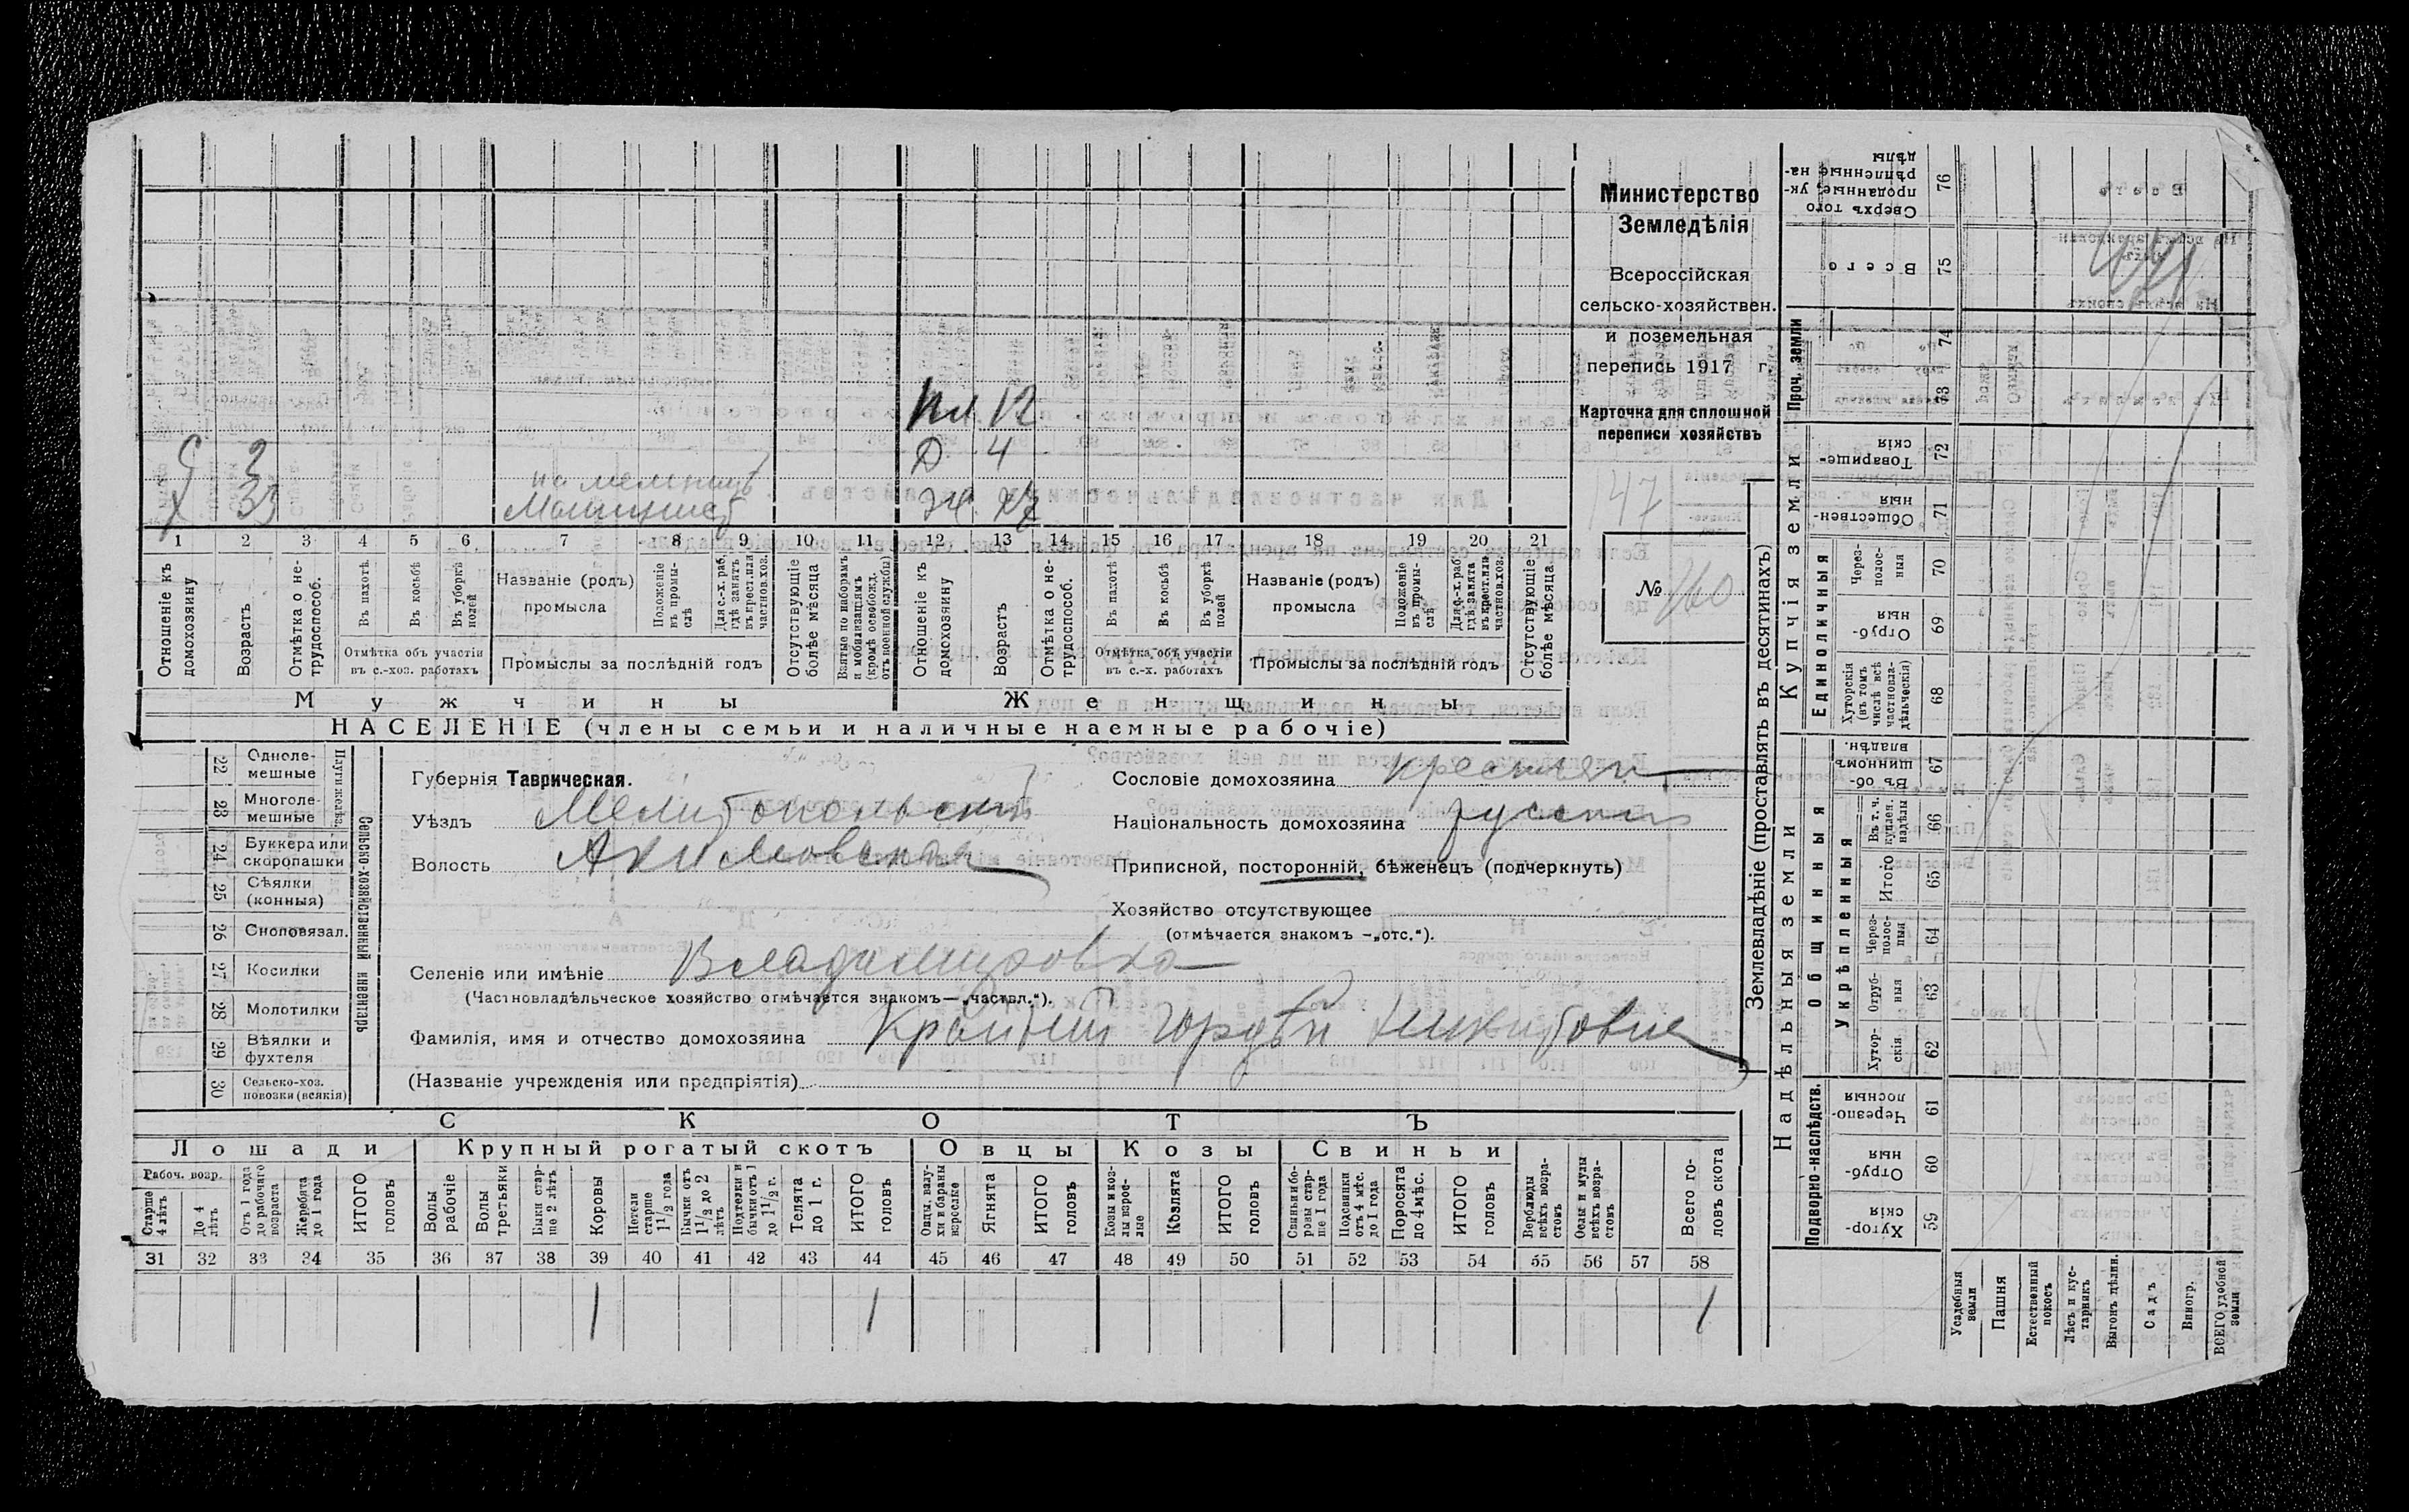 Министерство
Земледѣлія
Всероссійская
сельско-хозяйствен.
и поземельная
перепись 1917 г.
Карточка для сплошной
переписи хозяйствъ
47
№ 260
пл. 12
С 3 Д 4
на мельницѣ
Х 33 Машинистъ Ж 27
1 2 3 4 5 6 7 8 9 10 11 12 13 14 15 16 17 18 19 20 21
Отношеніе къ домохозяину
Возрастъ
Отмѣтка о не-трудоспособ.
Въ пахотѣ
Въ косьбѣ
Въ уборкѣ полей
Отмѣтка объ участіи въ с.-хоз. работахъ
Названіе (родъ) промысла
Положеніе въ промы-слѣ
Для с.-х. раб. гдѣ занятъ въ крест. или частнов. хоз.
Промыслы за послѣдній годъ
Отсутствующіе болѣе мѣсяца
Взятые по наборамъ и мобилизаціямъ (кромѣ освобожд. отъ военной службы)
Отношеніе къ домохозяину
Возрастъ
Отмѣтка о не-трудоспособ.
Въ пахотѣ
Въ косьбѣ
Въ уборкѣ полей
Отмѣтка объ участіи въ с.-х. работахъ
Названіе (родъ) промысла
Положеніе въ промы-слѣ
Для с.-х. раб. гдѣ занята въ крест. или частнов. хоз.
Промыслы за послѣдній годъ
Отсутствующіе болѣе мѣсяца
Мужчины Женщины
НАСЕЛЕНІЕ (члены семьи и наличные наемные рабочіе)
Сельско-хозяйственный инвентарь
Плуги желѣз.
22 Одноле-мешные
23 Многоле-мешные
24 Буккера или скоропашки
25 Сѣялки (конныя)
26 Сноповязал.
27 Косилки
28 Молотилки
29 Вѣялки и фухтеля
30 Сельско-хоз. повозки (всякія)
Губернія Таврическая.
Уѣздъ Мелитопольскій
Волость Акимовская
Сословіе домохозяина крестьян
Національность домохозяина русскій
Приписной, посторонній, бѣженецъ (подчеркнуть)
Хозяйство отсутствующее
(отмѣчается знакомъ —„отс.“).
Селеніе или имѣніе Владимировка
(Частновладѣльческое хозяйство отмѣчается знакомъ—„частвл.“).
Фамилія, имя и отчество домохозяина Крайній Гордѣй Никитовичъ
(Названіе учрежденія или предпріятія)
СКОТЪ
Лошади Крупный рогатый скотъ Овцы Козы Свиньи
Рабоч. возр.
Старше 4 лѣтъ
До 4 лѣтъ
Отъ 1 года до рабочаго возраста
Жеребята до 1 года
ИТОГО головъ
Волы рабочіе
Волы третьяки
Быки стар-ше 2 лѣтъ
Коровы
Нетели старше 1 1/2 года
Бычки отъ 1 1/2 до 2 лѣтъ
Подтелки и бычки отъ 1 до 1 1/2 г.
Телята до 1 г.
ИТОГО головъ
Овцы, валу-хи и бараны взрослые
Ягнята
ИТОГО головъ
Козы и коз-лы взрос-лые
Козлята
ИТОГО головъ
Свиньи и бо-ровы стар-ше 1 года
Подсвинки отъ 4 мѣс. до 1 года
Поросята до 4 мѣс.
ИТОГО головъ
Верблюды всѣхъ возра-стовъ
Ослы и мулы всѣхъ возра-стовъ
Всего го-ловъ скота
31 32 33 34 35 36 37 38 39 40 41 42 43 44 45 46 47 48 49 50 51 52 53 54 55 56 57 58
1 1 1
Землевладѣніе (проставлять въ десятинахъ)
Надѣльныя земли Купчія земли Проч. земли
Подворно-наслѣдств.
Общинныя
Укрѣпленныя
Единоличныя
59 Хутор-скія
60 Отруб-ныя
61 Черезпо-лосныя
62 Хутор-скія
63 Отруб-ныя
64 Через-полос-ныя
65 Итого
66 Въ т. ч. куплен. надѣлы
67 Въ об-щинномъ владѣн.
68 Хуторскія (въ томъ числѣ всѣ частновла-дѣльческія)
69 Отруб-ныя
70 Через-полос-ныя
71 Обществен-ныя
72 Товарище-скія
73
74
75 Всего
76 Сверхъ того проданные, ук-рѣпленные на-дѣлы
Усадебныя земли
Пашня
Естественный покосъ
Лѣсъ и кус-тарникъ
Выгонъ дѣлин.
Садъ
Виногр.
ВСЕГО удобной земли